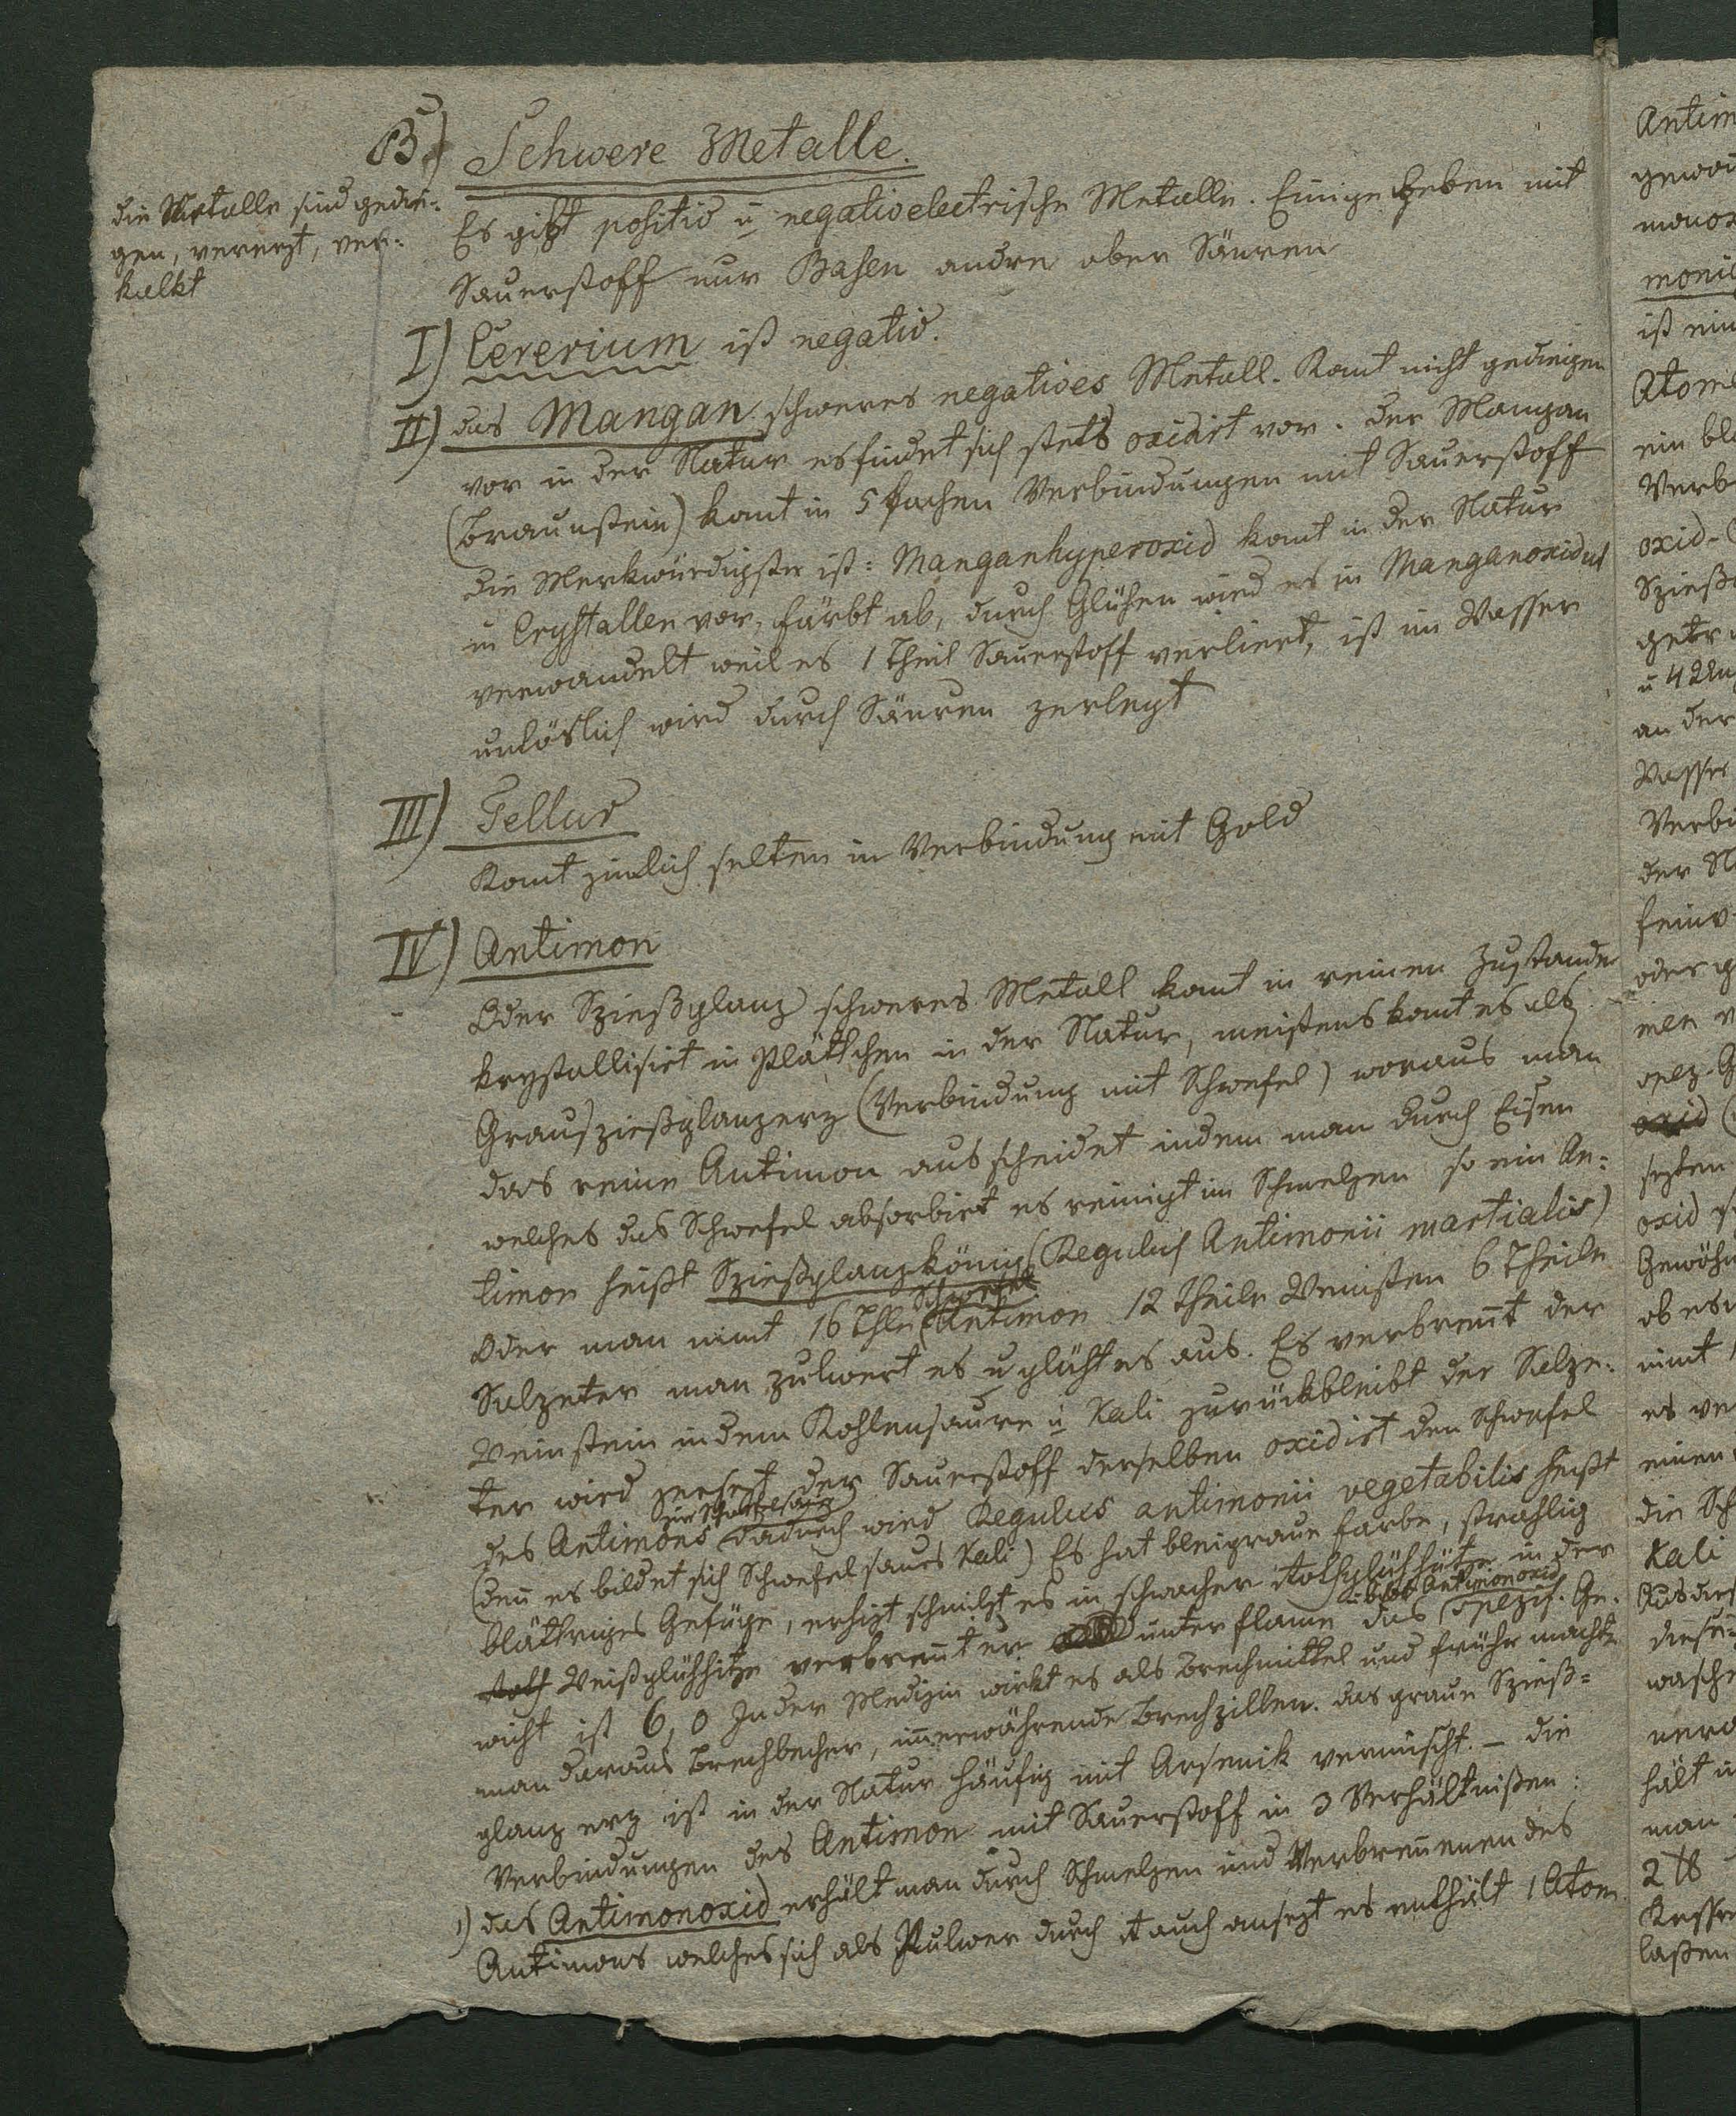 B.) Schwere Metalle.
die Metalle sind gedie-
gen, vererzt, ver-
kalkt
Es gibt positiv u negativelectrische Metalle. Einige geben mit
Sauerstoff nur Basen andre aber Säuren
I) Cererium ist negativ.
II) das Mangan schweres negatives Metall. Komt nicht gediegen
vor in der Natur es findet sich stets oxidirt vor. Der Mangan
(Braunstein) komt in 5 fachen Verbindungen mit Sauerstoff
die Merkwürdigste ist: Manganhyperoxid komt in der Natur
in Crystallen vor, färbt ab, durch Glühen wird es in Manganoxidul
verwandelt weil es 1 Theil Sauerstoff verliert, ist im Wasser
unlöslich wird durch Säuren zerlegt
III) Tellur
Komt zimlich selten in Verbindung mit Gold
IV) Antimon
Oder Spießglanz schweres Metall komt in reinen Zustande
krystallisirt in Plättchen in der Natur, meistens komt es als
Grauspießglanzerz (Verbindung mit Schwefel) woraus man
das reine Antimon ausscheidet indem man durch Eisen
welches das Schwefel absorbirt es reinigt im Schmelzen so ein An-
timon heißt Spießglanzkönig (Regulus Antimonii martialis)
Schwefel
Oder man nimt 16 Thle Antimon 12 Theile Weinstein 6 Theile
Salpeter man pulvert es u glüht es aus. Es verbrent der
Weinstein indem Kohlensäure u Kali zurückbleibt der Salpe-
ter wird zersezt der Sauerstoff derselben oxidirt den Schwefel
zur Schwefelsäure
des Antimons dadurch wird Regulus antimonii vegetabilis heißt
(den es bildet sich Schwefelsaures Kali) Es hat bleigraue Farbe, strahlig
blättriges Gefüge, erhizt schmilzt es in schwacher Rothglühhitze in der
gibt Antimonoxid
Roth Weißglühhitze verbrent er unter flame das spezif. Ge-
wicht ist 6,0 In der Medizin wirkt es als Brechmittel und früher machte
man daraus Brechbecher, imerwährende Brechpillen. das graue Spieß-
glanzerz ist in der Natur häufig mit Arsenik vermischt. – die
Verbindungen des Antimon mit Sauerstoff in 3 Verhältnißen:
1) das Antimonoxid erhält man durch Schmelzen und Verbrenen des
Antimons welches sich als Pulver durch Rauch ansezt es enthält 1 Atom
Antim
gewor
monox
monig
ist ein
Atom
ein bl
Verb
oxid
Spieß
getr
an der
Wasser
Verbi
der N
fein
oder g
oxid
sezten
oxid
Gewöhn
ob es
nimt
es ve
einen
die Sch
Kali
Aus der
diese
wasch
hält
man
2 ℔
Kesse
laßen